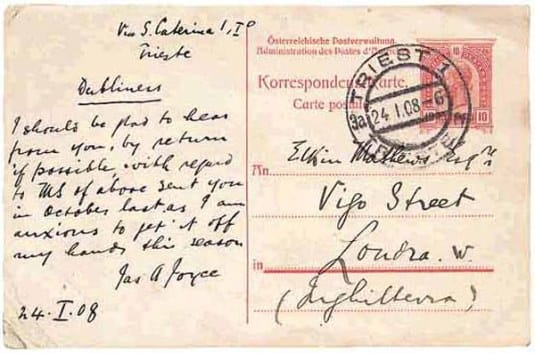 Via S. Caterina 1, Iº
Trieste
Dubliners
I should be glad to hear
from you, by return
if possible, with regard
to MS of above sent you
in October last as I am
anxious to get it off
my hands this season
Jas A Joyce
24.I.08
Österreichische Postverwaltung.
Administration des Postes d'
Korrespondenzkarte.
Carte postale
10
10
TRIEST 1
3a 24.I.08-6
TRIESTE
An
Elkin Mathews Esqre
Vigo Street
in
Londra. W.
(Inghilterra)